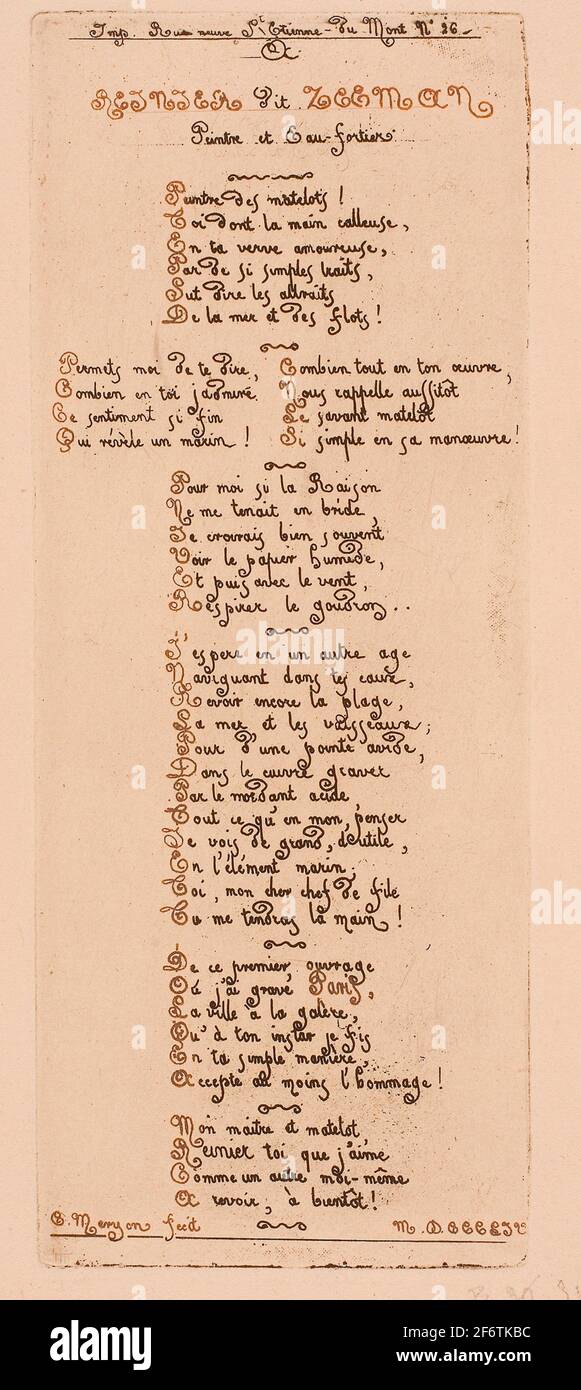 Imp. Rue neuve St Etienne-du Mont No 26
A
REINIER dit ZEEMAN
Peintre et Eau-fortier.
Peintre des matelots !
Toi dont la main calleuse,
En ta verve amoureuse,
Par de si simples traits,
Sut dire les attraits
De la mer et des flots !
Permets moi de te dire,
Combien en toi j'admire
Ce sentiment si fin
Qui révèle un marin !
Combien tout en ton œuvre,
Nous rappelle aussitôt
Le savant matelot
Si simple en sa manœuvre !
Pour moi si la Raison
Ne me tenait en bride,
Je croirais bien souvent
Voir le papier humide,
Et puis avec le vent,
Respirer le goudron..
J'espere en un autre age
Naviguant dans tes eaux,
Revoir encore la plage,
La mer et les vaisseaux;
Pour d'une pointe avide,
Dans le cuivre graver
Par le mordant acide
Tout ce qu'en mon, penser
Je vois de grand, d'utile,
En l'élément marin;
Toi, mon cher chef de file
Tu me tendras la main !
De ce premier, ouvrage
Où j'ai gravé Paris,
La ville à la galère,
Qu'à ton instar je fis
En ta simple manière,
Accepte au moins l'hommage !
Mon maitre et matelot,
Reinier toi que j'aime
Comme un autre moi-même
A revoir, à bientôt !
C. Meryon fecit
M.D.CCCLIV
alamy
alamy
Image ID: 2F6TKBC
www.alamy.com